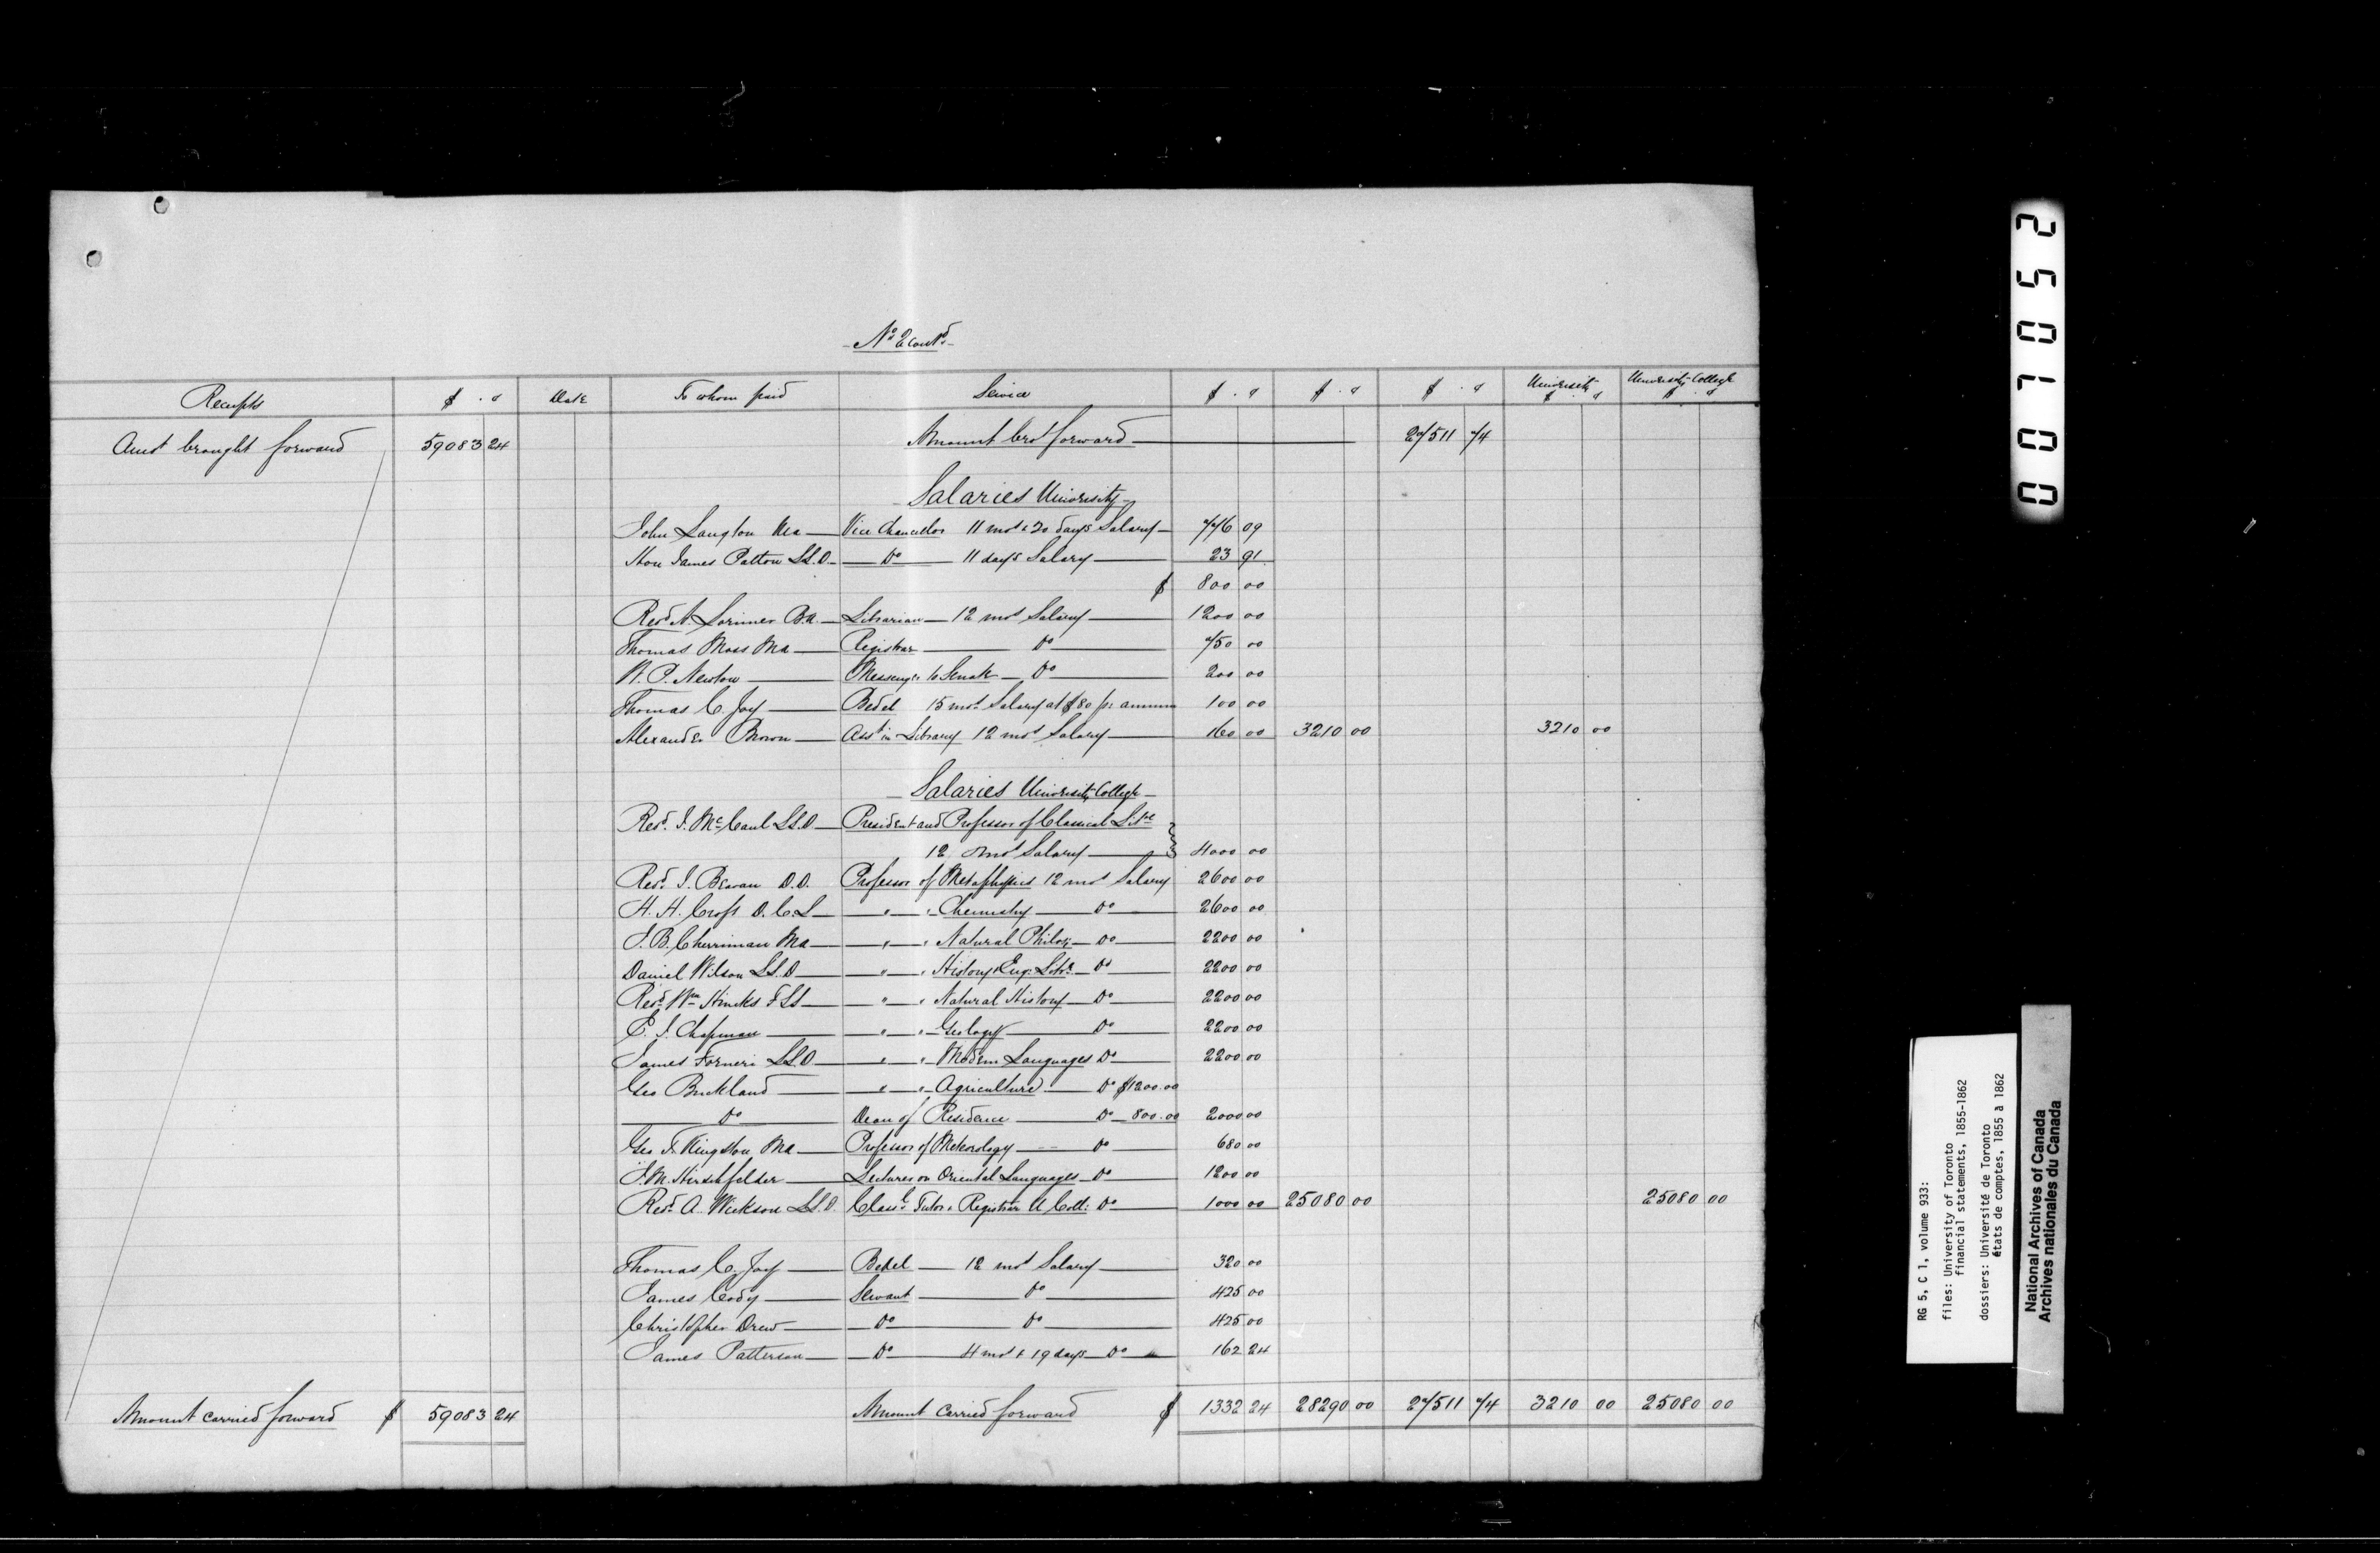 No 2 contd
Receipts $ . c Date To whom paid Service $ . c $ . c $ . c University $ . c University College $ . c
Amt brought forward 59083 24 Amount brot forward 27511 74
Salaries University
John Langton MA Vice Chancelor 11 mos & 20 days Salary 776 09
Hon James Patton LL.D. Do 11 days Salary 23 91
$ 800 00
Revd A. Lorimer B.A. Librarian 12 mos Salary 1200 00
Thomas Moss MA Registrar Do 750 00
W. P. Newton Messengr to Senate Do 200 00
Thomas C. Joy Bedel 15 mos Salary at $80 pr annum 100 00
Alexander Brown Asst in Library 12 mos Salary 160 00 3210 00 3210 00
Salaries University College
Revd. J. McCaul LL.D. President and Professor of Classical Litre
12 mos Salary 4000 00
Revd. J. Bevan D.D. Professor of Metaphysics 12 mos Salary 2600 00
H. H. Croft D.C.L " " Chemistry Do 2600 00
J. B. Cherriman MA " " Natural Philoy Do 2200 00
Daniel Wilson LL.D " " History & Eng. Litre Do 2200 00
Revd Wm Hincks FLS " " Natural History Do 2200 00
E. J. Chapman " " Geology Do 2200 00
James Forneri LL.D " " Modern Languages Do 2200 00
Geo Buckland " " Agriculture Do $1200.00
Do Dean of Residence Do 800.00 2000 00
Geo T. Kingston MA Professor of Meteorology Do 680 00
J. M. Hirschfelder Lectures on Oriental Languages Do 1200 00
Revd. A. Wickson LL.D. Classl Tutor & Registrar U Coll: Do 1000 00 25080 00 25080 00
Thomas C. Joy Bedel 12 mos Salary 320 00
James Cody Servant Do 425 00
Christopher Drew Do Do 425 00
James Patterson Do 4 mos & 19 days Do 162 24
Amount carried forward $ 59083 24 Amount carried forward $ 1332 24 28290 00 27511 74 3210 00 25080 00
007052
RG 5, C 1, volume 933:
files: University of Toronto
financial statements, 1855-1862
dossiers: Université de Toronto
états de comptes, 1855 à 1862
National Archives of Canada
Archives nationales du Canada